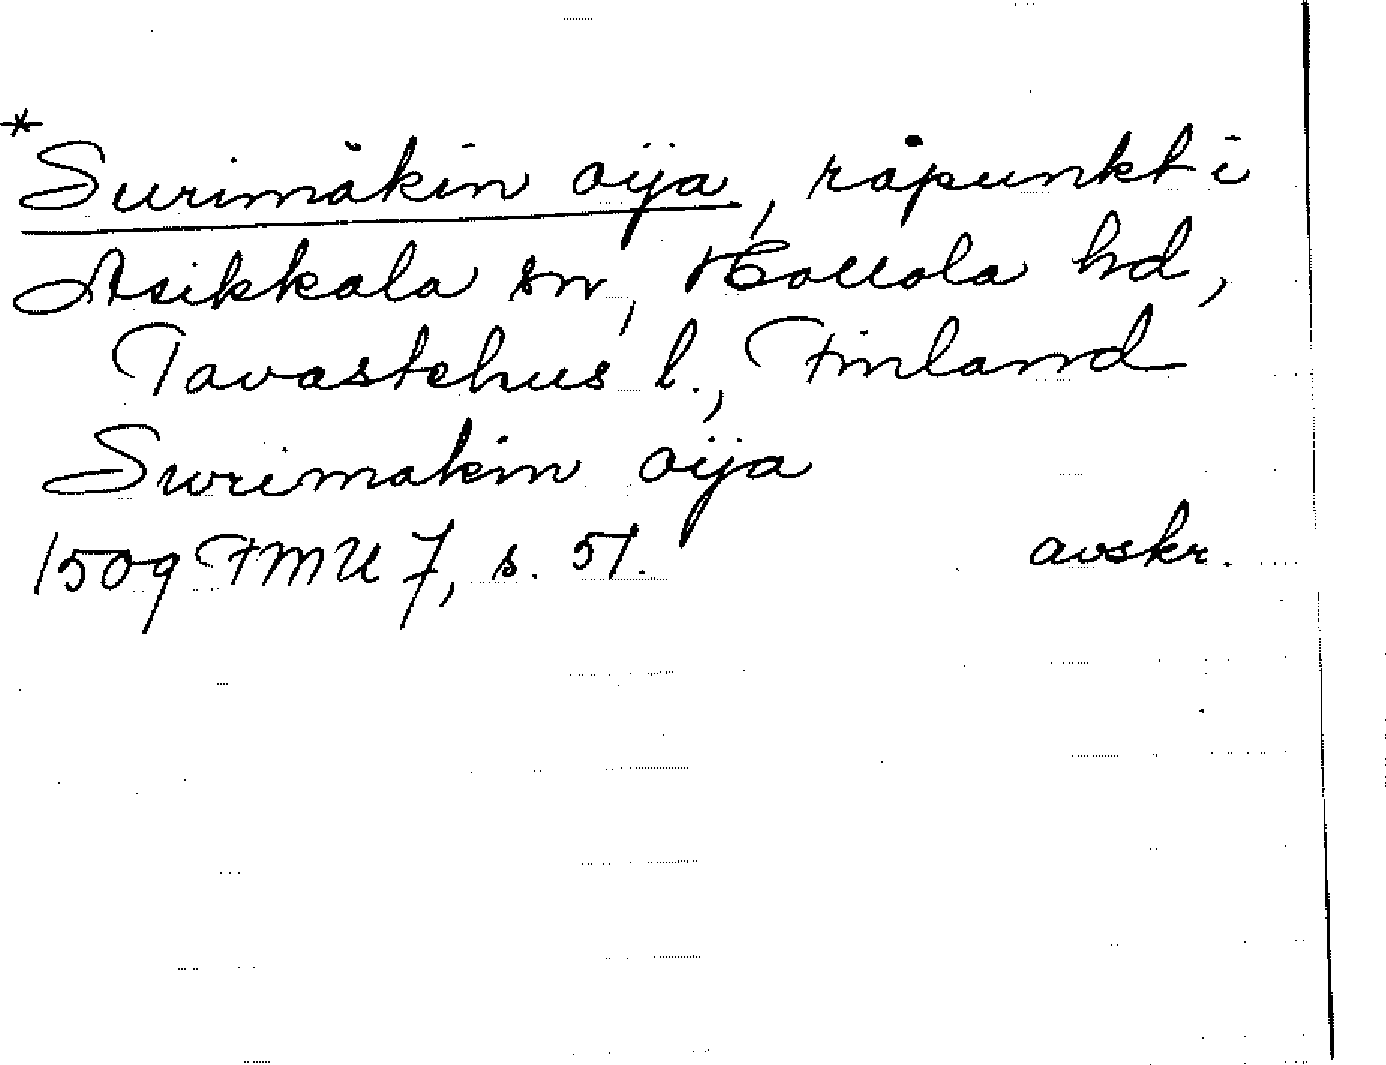 *
Surimäkin oija, råpunkt i
Asikkala sn, Hollola hd,
Tavastehus l., Finland
Surimakin oija
1509 FMU 7, s. 51. avskr.